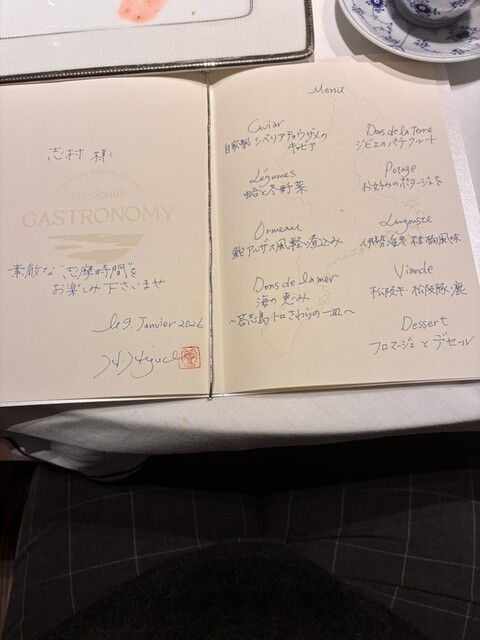 志村 様
Ise-Shima
GASTRONOMY
素敵な"志摩時間"を
お楽しみ下さいませ
le 9 Janvier 2026
Menu
Caviar
自家製シベリアチョウザメの
キャビア
Légumes
蛤と冬野菜
Ormeau
鮑アルザス風軽い煮込み
Dons de la mer
海の恵み
〜答志島トロさわらの一皿〜
Dons de la terre
ジビエのパテクルート
Potage
お好みのポタージュを
Langouste
伊勢海老 風味
Viande
松阪牛・松阪豚・鹿
Dessert
フロマージュ と デセール